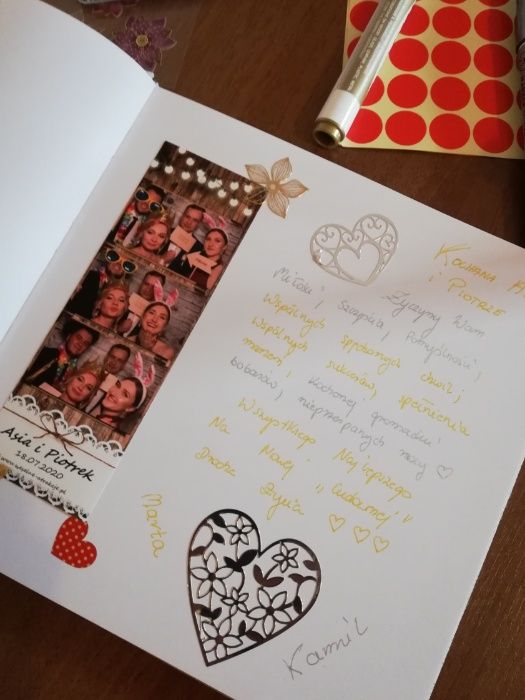 Asia i Piotrek
18.07.2020
Kochana
i Piotrze
Życzymy Wam
Miłości, Szczęścia, Pomyślności,
Wspólnych spędzonych chwil,
Wspólnych sukcesów, spełnienia
marzeń, kochanej gromadki
bobasów, nieprzespanych nocy ♡
Wszystkiego Najlepszego
Na Nowej "cudownej"
Drodze Życia ♡♡♡
Marta
Kamil